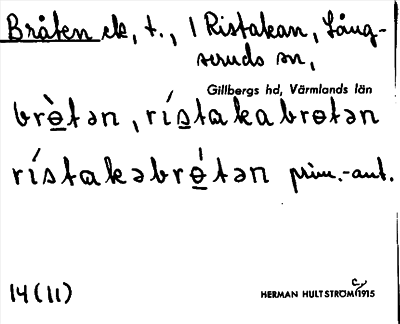 Bråten ek, t., 1 Ristakan, Lång-
seruds sn,
Gillbergs hd, Värmlands län
brɵ̀tən, rístakabrɵtən
rístakəbrɵ́tən prim.-ant.
14 (11)
HERMAN HULTSTRÖM 1915